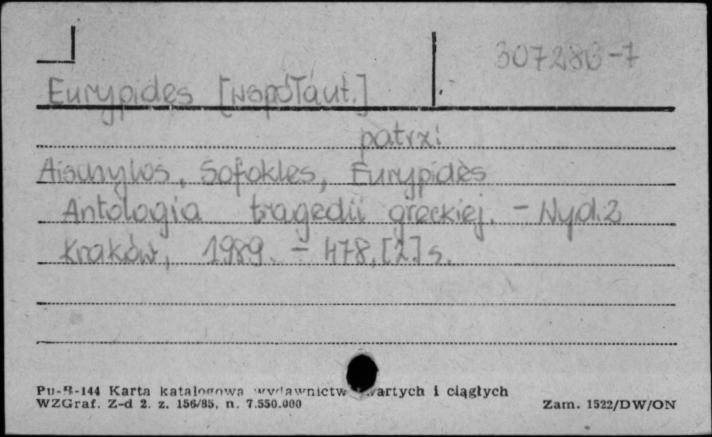 307286-7
Eurypides [współaut.]
patrz:
Aischylos, Sofokles, Eurypides
Antologia tragedii greckiej. - Wyd. 2
Kraków, 1989. - 478, [2] s.
Pu-B-144 Karta katalogowa wydawnictw zwartych i ciągłych
WZGraf. Z-d 2. z. 156/85, n. 7.550.000
Zam. 1522/DW/ON